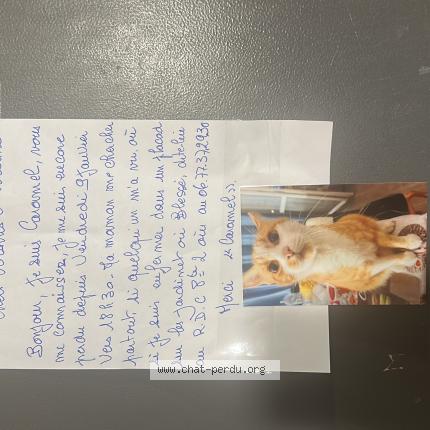 Bonjour, je suis Caramel, vous
me connaissez, je me suis encore
perdu depuis Vendredi 9 Janvier
Vers 18h30. Ma maman me cherche
partout, si quelqu'un m'a vu où
si je suis enfermé dans un placard
les jardins où blessé,
au R.D.C Pte 2 où au 06.77.37.29.30
Merci
« Caramel ».
www.chat-perdu.org